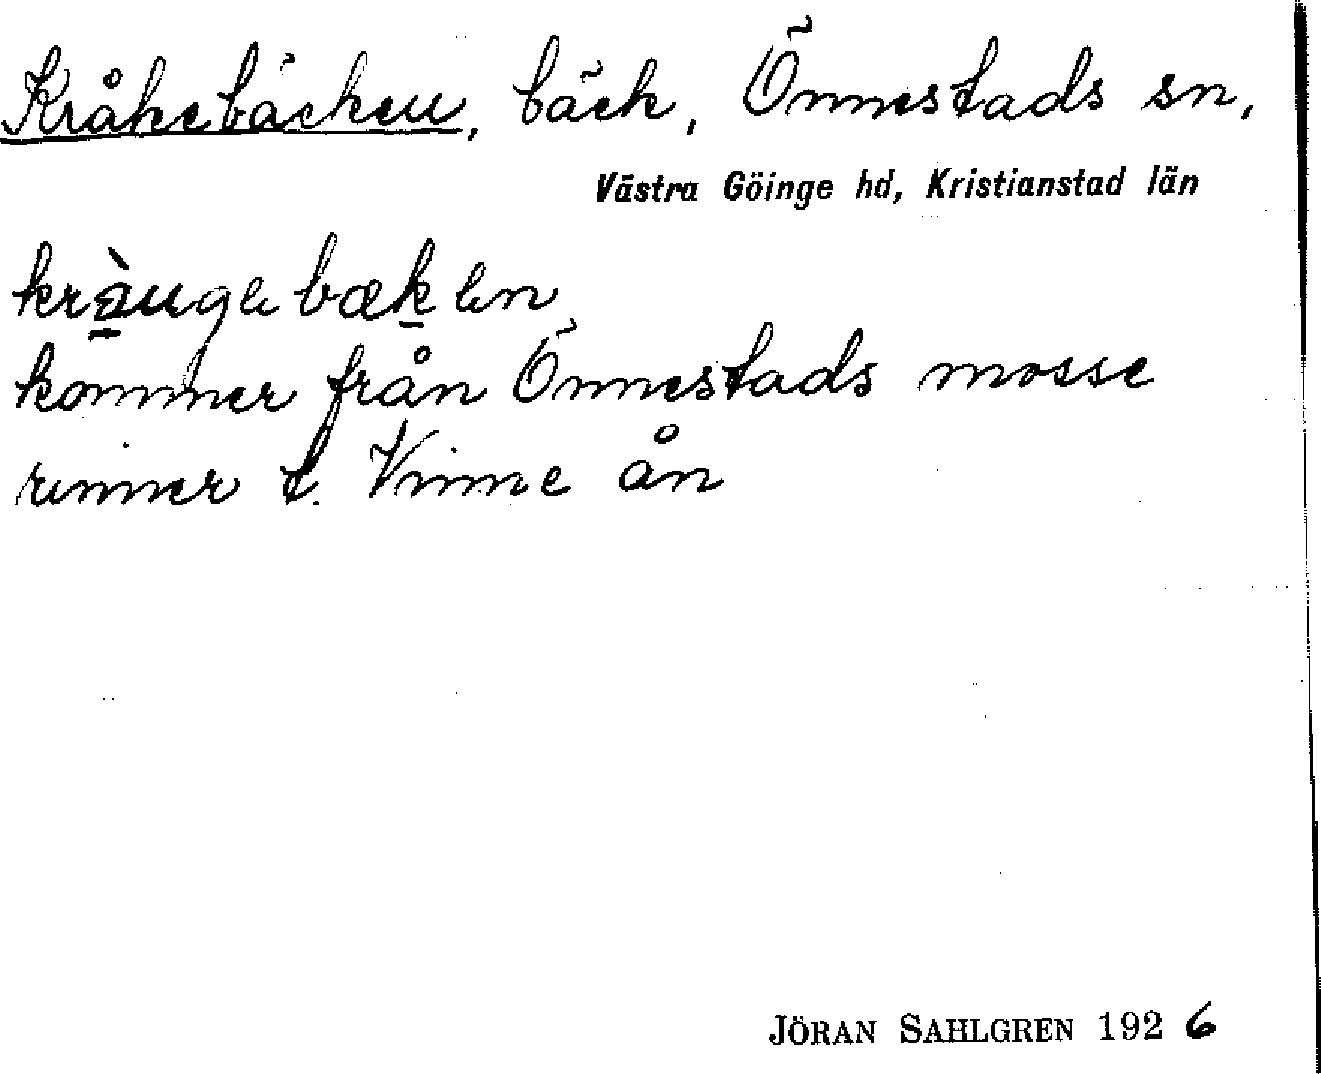 Kråkebäcken, bäck, Önnestads sn,
Västra Göinge hd, Kristianstad län
kommer från Önnestads mosse
rinner t. Vinne ån
JÖRAN SAHLGREN 1926